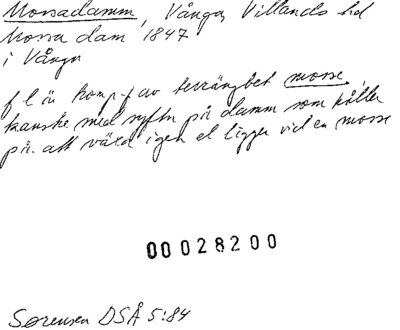 Mossadamm, Vånga, Villands hd
Mossa dam 1847
i Vånga
f l är komp. av terrängbet mosse,
kanske med syftn på damm som håller
på att växa igen el ligger vid en mosse
00028200
Sørensen DSÅ 5:84